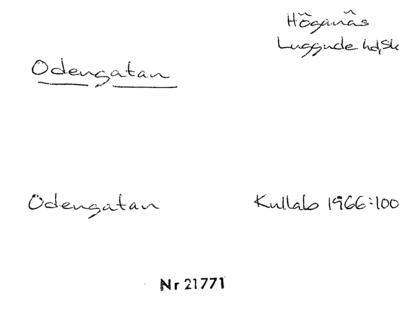 Höganäs
Luggude hd, Sk
Odengatan
Odengatan Kullabo 1966:100
Nr 21771